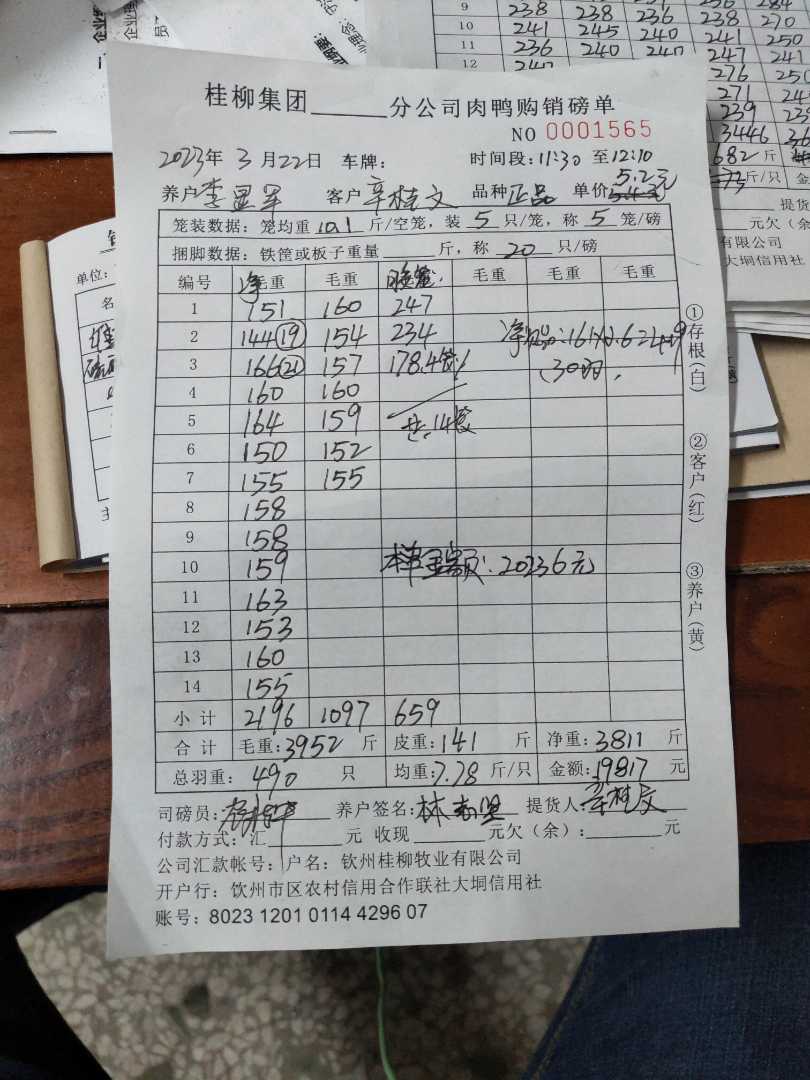 桂柳集团______分公司肉鸭购销磅单
NO 0001565
2023年 3月22日 车牌: 时间段:11:30 至12:10
养户 客户 辛桂文 品种 正品 单价 5.2元
笼装数据: 笼均重 10.1 斤/空笼, 装 5 只/笼, 称 5 笼/磅
捆脚数据: 铁筐或板子重量______斤, 称 20 只/磅
编号 净毛重 毛重 毛重 毛重 毛重
1 151 160 247
2 144(19) 154 234
3 166(21) 157 178.4笼
4 160 160
5 164 159 共:14笼
6 150 152
7 155 155
8 158
9 158
10 159 本单金额:20236元
11 163
12 153
13 160
14 155
小计 2196 1097 659
合计 毛重:3952 斤 皮重:141 斤 净重:3811 斤
总羽重: 490 只 均重:7.78 斤/只 金额:19817 元
司磅员: 养户签名: 提货人:辛桂文
付款方式:汇______元 收现______元欠(余):______元
公司汇款帐号: 户名: 钦州桂柳牧业有限公司
开户行: 饮州市区农村信用合作联社大垌信用社
账号: 8023 1201 0114 4296 07
①存根(白)
②客户(红)
③养户(黄)
9 238 238 236 238 270
10 241 245 240 241 250
11 236 240 240 247 241
12
276
271
239
3446
682 斤
斤/只
提货
元欠(余
有限公司
大垌信用社
单位: